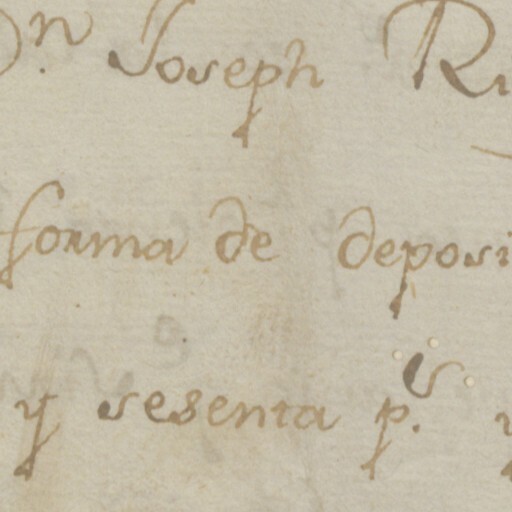 Dn. Joseph Ri
forma de deposi
y sesenta p.s y